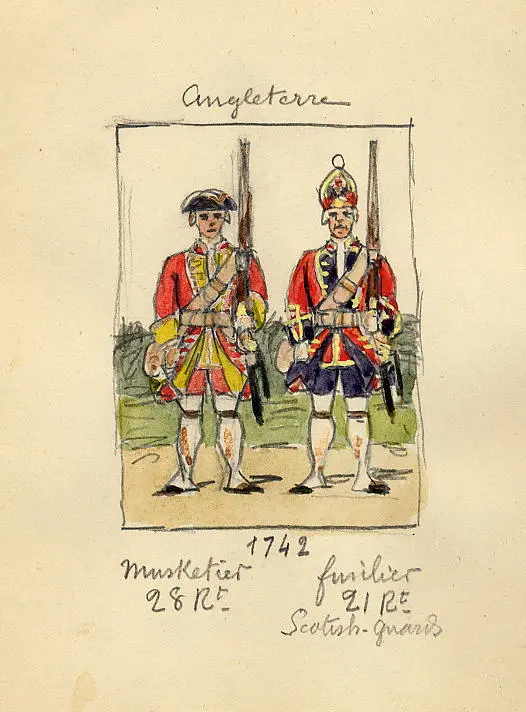 Angleterre
1742
Musketier
28 Rt
fusilier
21 Rt
Scotish-guards